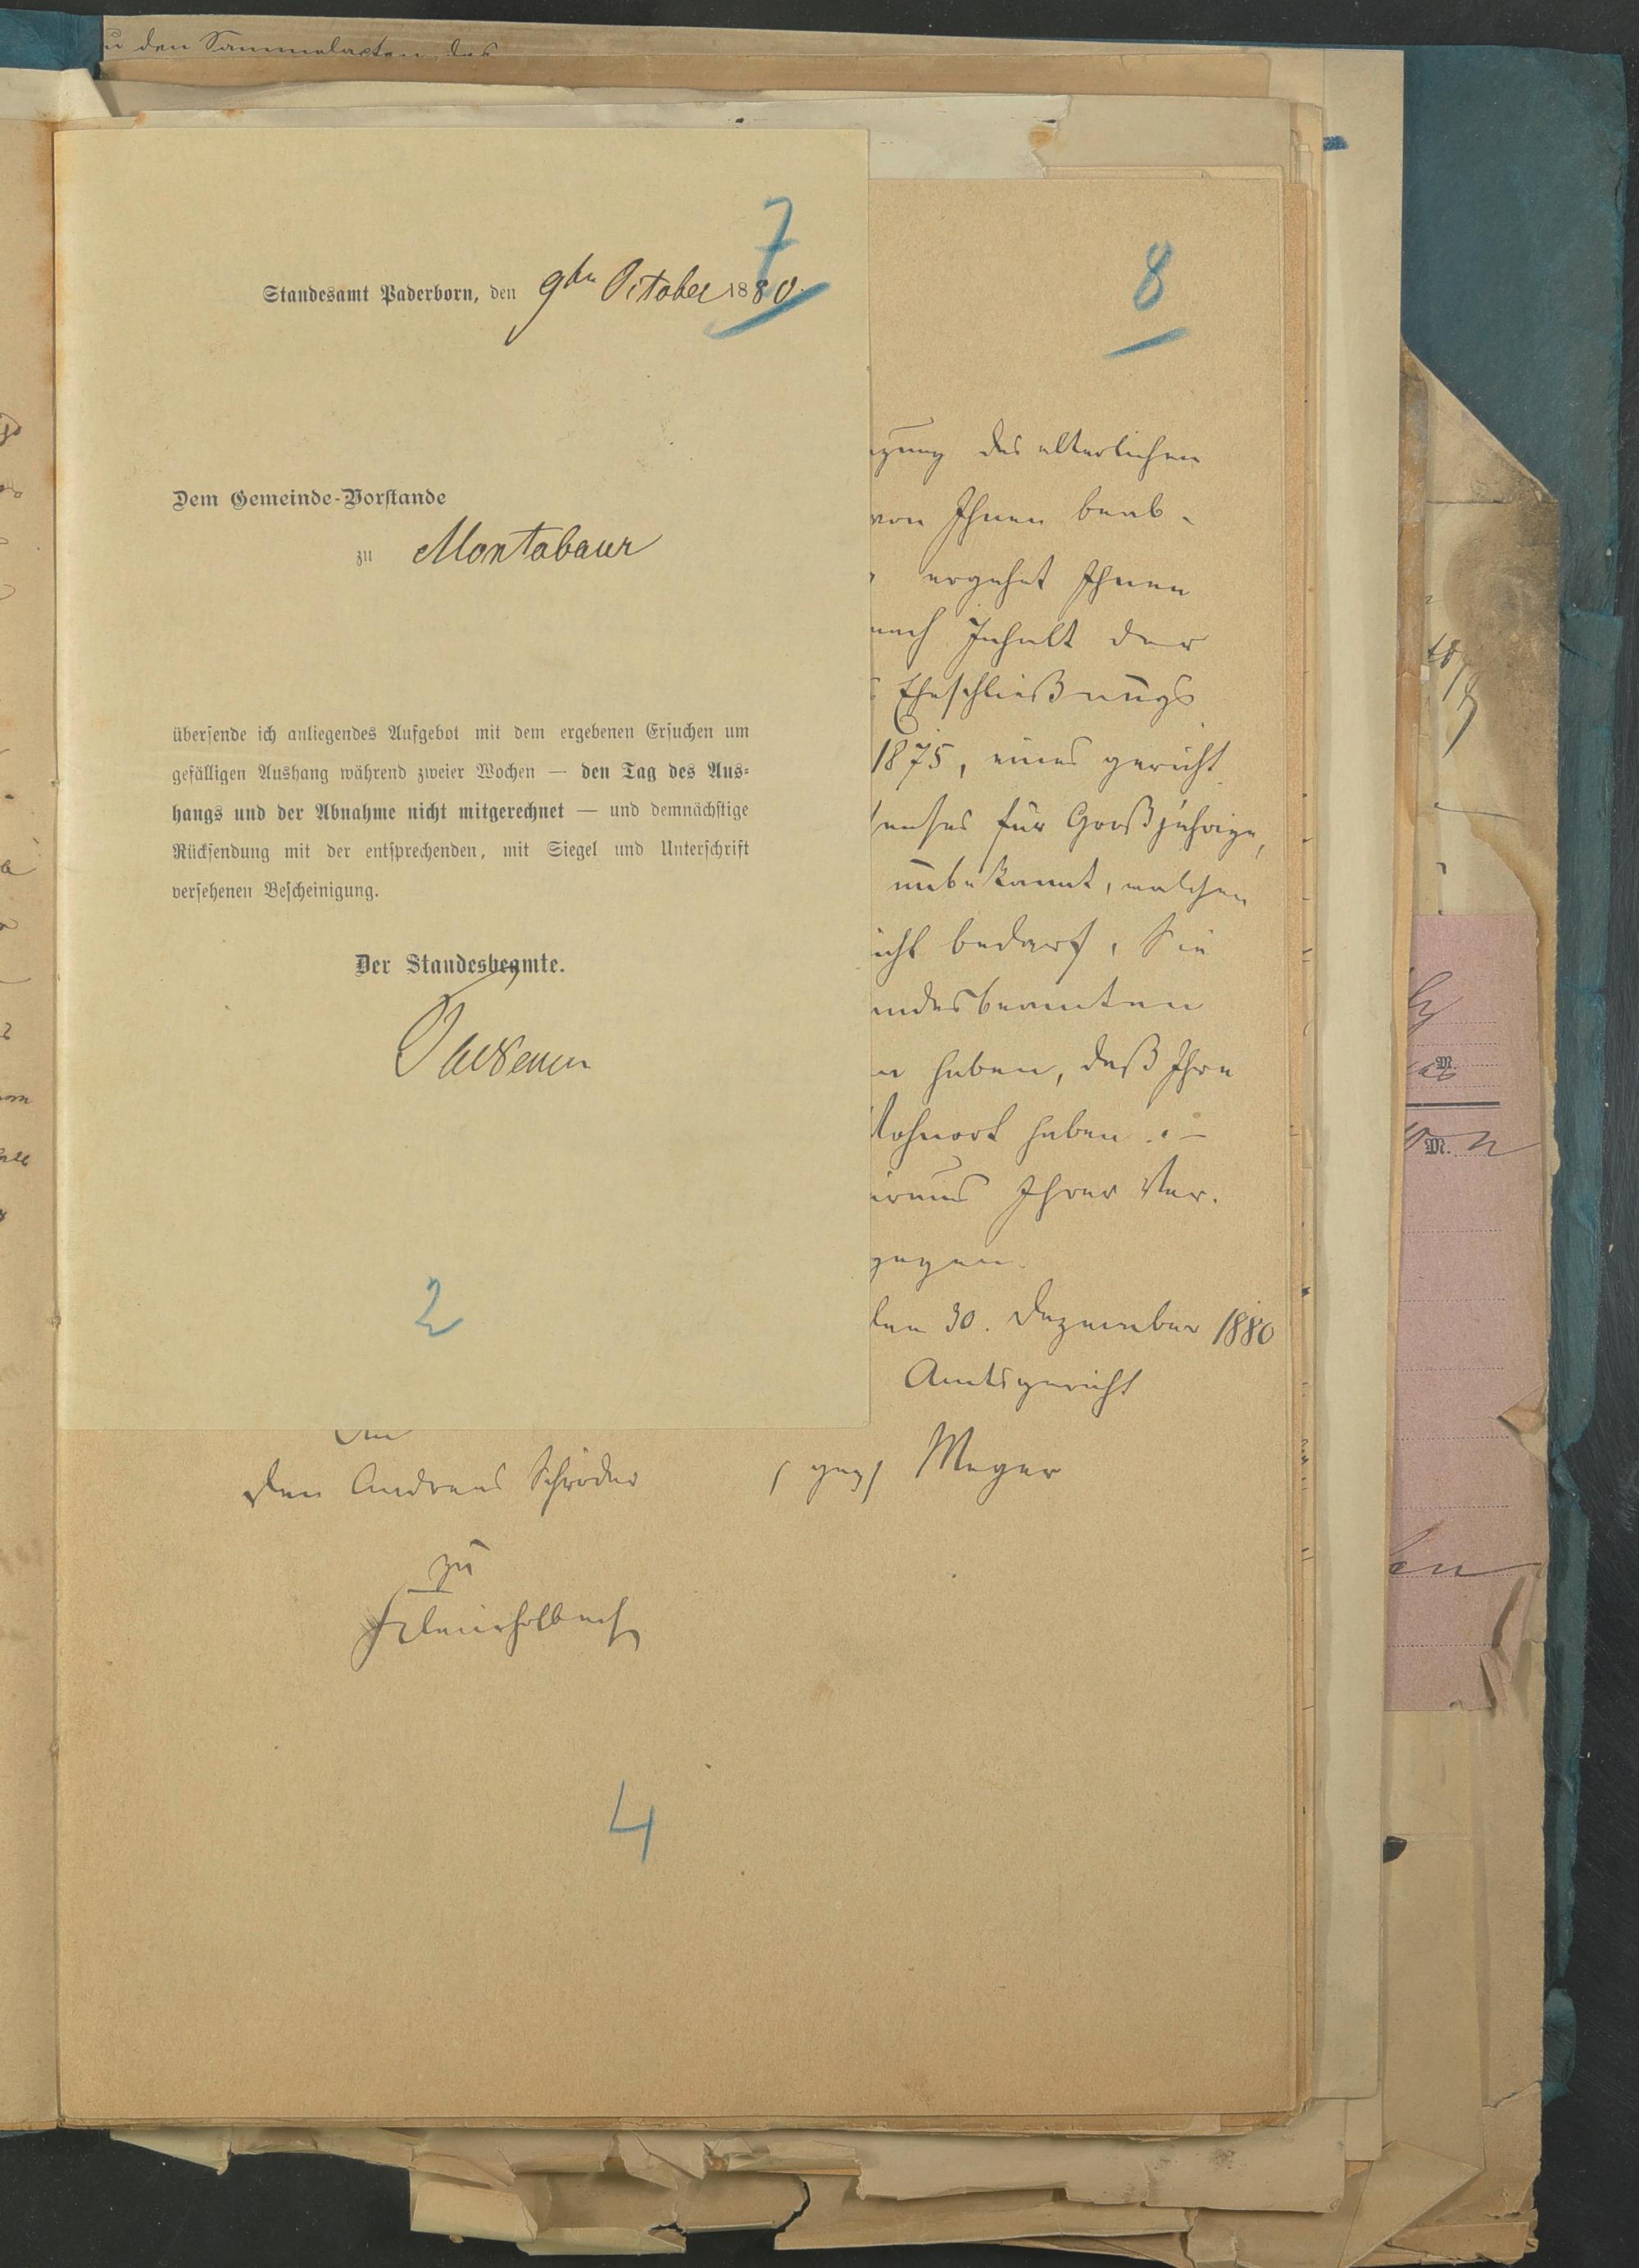 u den Sammelacten des
7
Standesamt Paderborn, den 9ten October 1880.
Dem Gemeinde-Vorstande
zu Montabaur
übersende ich anliegendes Aufgebot mit dem ergebenen Ersuchen um
gefälligen Aushang während zweier Wochen — den Tag des Aus-
hangs und der Abnahme nicht mitgerechnet — und demnächstige
Rücksendung mit der entsprechenden, mit Siegel und Unterschrift
versehenen Bescheinigung.
Der Standesbeamte.
2
8
gung des elterlichen
von Ihnen beab-
ergehet Ihnen
nach Inhalt der
Eheschließungs
1875, eines gericht
senses für Großjährige,
unbekannt, welchen
icht bedarf. Sie
andesbeamten
n haben, daß Ihre
Wohnort haben. -
Ihrer Ver-
gegen.
den 30. Dezember 1880
Amtsgericht
(gez) Meyer
An
den Andreas Schröder
zu
Kleinholbach
4
M.
M.
en